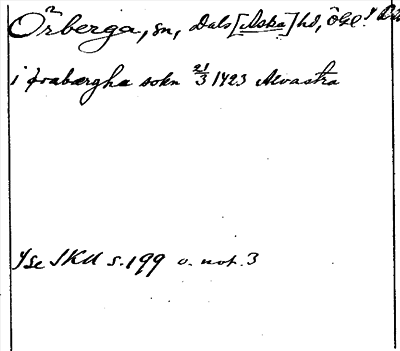 Örberga, sn, Dals [Aska] hd, Ögl.
i ørabærgha sokn 21/3 1423 Alvastra
Se SKU s. 199 o. not. 3